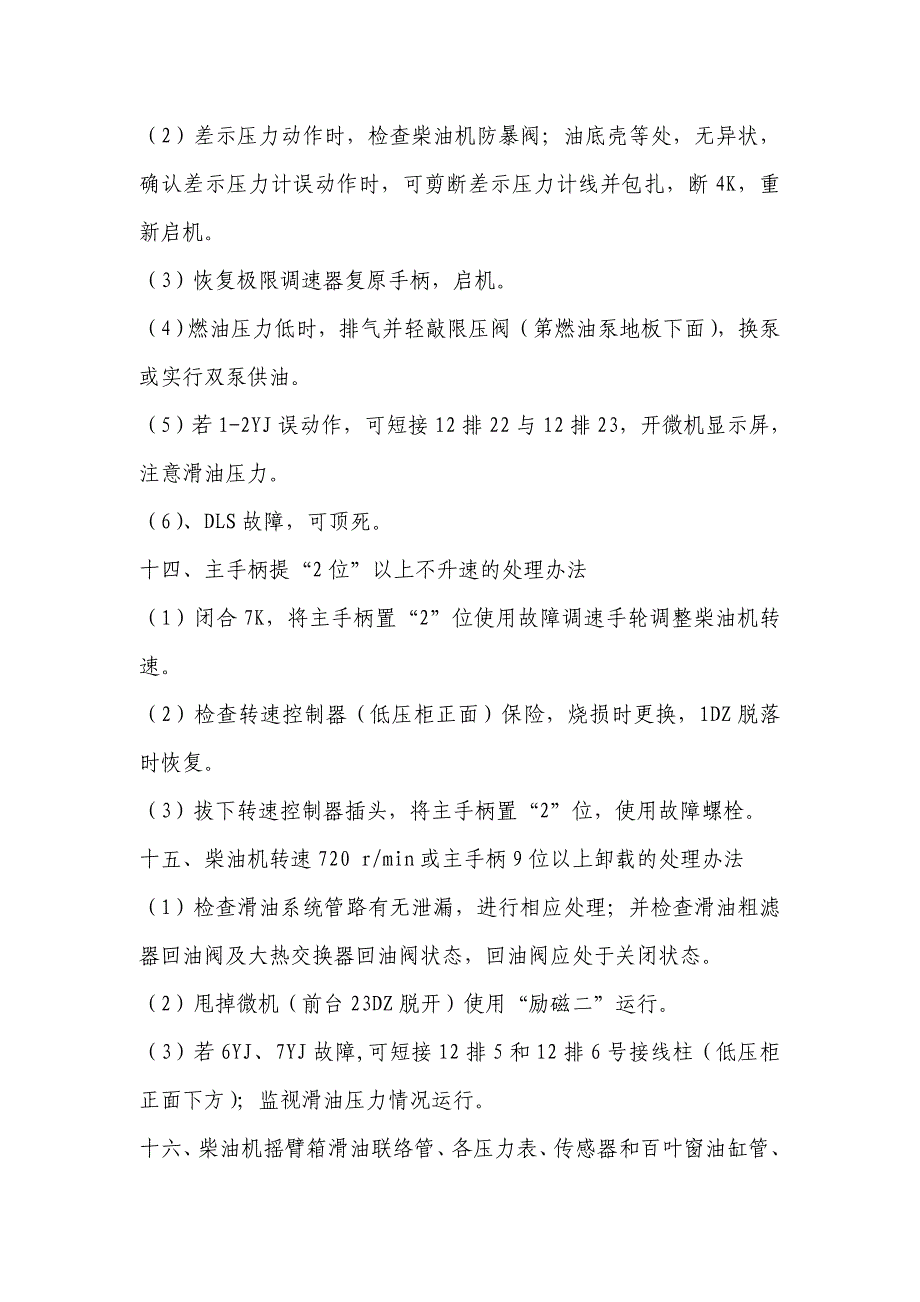 （2）差示压力动作时，检查柴油机防暴阀；油底壳等处，无异状，
确认差示压力计误动作时，可剪断差示压力计线并包扎，断 4K，重
新启机。
（3）恢复极限调速器复原手柄，启机。
（4）燃油压力低时，排气并轻敲限压阀（第燃油泵地板下面），换泵
或实行双泵供油。
（5）若 1-2YJ 误动作，可短接 12 排 22 与 12 排 23，开微机显示屏，
注意滑油压力。
（6）、DLS 故障，可顶死。
十四、主手柄提“2 位”以上不升速的处理办法
（1）闭合 7K，将主手柄置“2”位使用故障调速手轮调整柴油机转
速。
（2）检查转速控制器（低压柜正面）保险，烧损时更换，1DZ 脱落
时恢复。
（3）拔下转速控制器插头，将主手柄置“2”位，使用故障螺栓。
十五、柴油机转速 720 r/min 或主手柄 9 位以上卸载的处理办法
（1）检查滑油系统管路有无泄漏，进行相应处理；并检查滑油粗滤
器回油阀及大热交换器回油阀状态，回油阀应处于关闭状态。
（2）甩掉微机（前台 23DZ 脱开）使用“励磁二”运行。
（3）若 6YJ、7YJ 故障,可短接 12 排 5 和 12 排 6 号接线柱（低压柜
正面下方）；监视滑油压力情况运行。
十六、柴油机摇臂箱滑油联络管、各压力表、传感器和百叶窗油缸管、